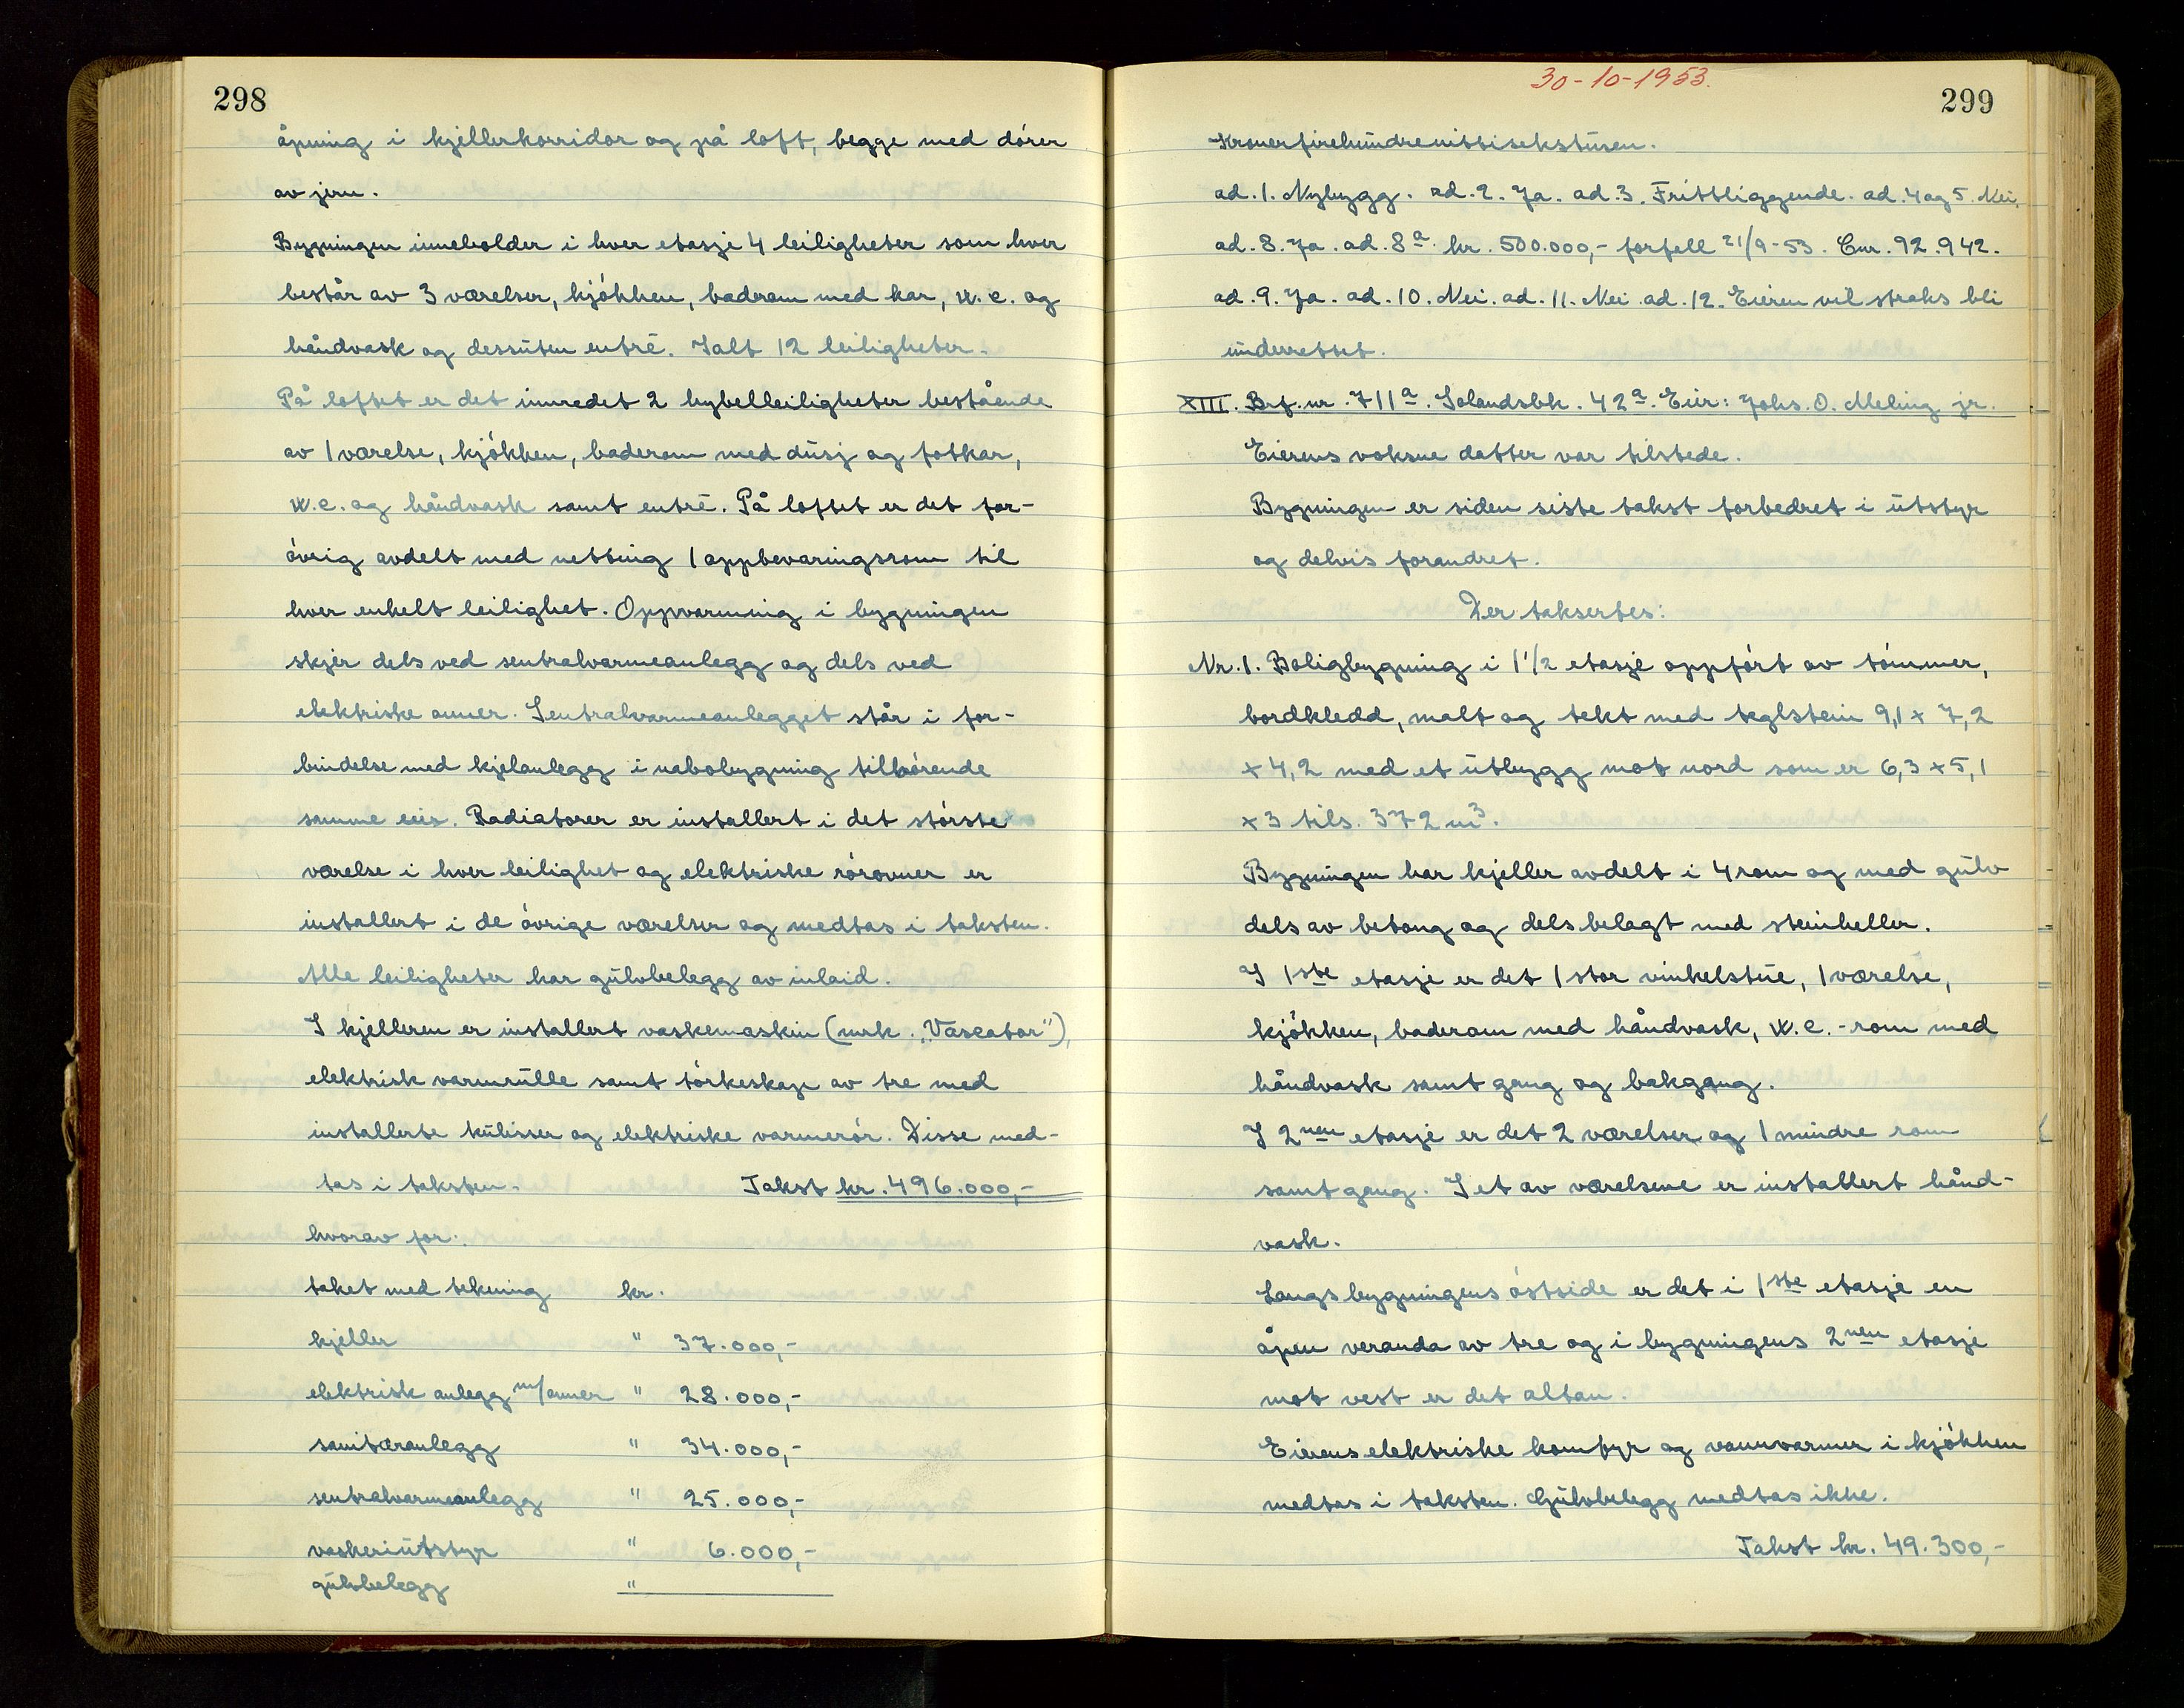 298
åpning i kjellerkorridor og på loft, begge med dører
av jern.
Bygningen inneholder i hver etasje 4 leiligheter som hver
består av 3 værelser, kjøkken, baderom med kar, w.c. og
håndvask og dessuten entré. Ialt 12 leiligheter.
På loftet er det innredet 2 hybelleiligheter bestående
av 1 værelse, kjøkken, baderom med dusj og fotkar,
w.c. og håndvask samt entré. På loftet er det for-
øvrig avdelt med netting 1 oppbevaringsrom til
hver enkelt leilighet. Oppvarming i bygningen
skjer dels ved sentralvarmeanlegg og dels ved
elektriske ovner. Sentralvarmeanlegget står i for-
bindelse med kjelanlegg i nabobygning tilhørende
samme eier. Radiatorer er installert i det største
værelse i hver leilighet og elektriske rørovner er
installert i de øvrige værelser og medtas i taksten.
Alle leiligheter har gulvbelegg av inlaid.
I kjelleren er installert vaskemaskin (mrk. „Vascator"),
elektrisk varmrulle samt tørkeskap av tre med
installerte kulisser og elektriske varmerør. Disse med-
tas i taksten. Takst kr. 496.000,-
hvorav for:
taket med tekning kr.
kjeller " 37.000,-
elektrisk anlegg m/ovner " 28.000,-
sanitæranlegg " 34.000,-
sentralvarmeanlegg " 25.000,-
vaskeriutstyr " 6.000,-
gulvbelegg "
30-10-1953.
299
Kronerfirehundrenittisekstusen.
ad. 1. Nybygg. ad. 2. Ja. ad. 3. Frittliggende. ad. 4 og 5. Nei.
ad. 8. Ja. ad. 8a. kr. 500.000,- forfell 21/9-53. Cnr. 92.942.
ad. 9. Ja. ad. 10. Nei. ad. 11. Nei. ad. 12. Eieren vil straks bli
underrettet.
XIII. Brf. nr. 711a. Solandsbk. 42a. Eier: Johs. O. Meling jr.
Eierens voksne datter var tilstede.
Bygningen er siden siste takst forbedret i utstyr
og delvis forandret.
Der taksertes:
Nr. 1. Boligbygning i 1 1/2 etasje oppført av tømmer,
bordkledd, malt og tekt med teglstein 9,1 x 7,2
x 4,2 med et utbygg mot nord som er 6,3 x 5,1
x 3 tils. 372 m3.
Bygningen har kjeller avdelt i 4 rom og med gulv
dels av betong og dels belagt med steinheller.
I 1ste etasje er det 1 stor vinkelstue, 1 værelse,
kjøkken, baderom med håndvask, w.c.-rom med
håndvask samt gang og bakgang.
I 2nen etasje er det 2 værelser og 1 mindre rom
samt gang. I et av værelsene er installert hånd-
vask.
Langs bygningens østside er det i 1ste etasje en
åpen veranda av tre og i bygningens 2nen etasje
mot vest er det altan.
Eierens elektriske komfyr og vannvarmer i kjøkken
medtas i taksten. Gulvbelegg medtas ikke.
Takst kr. 49.300,-